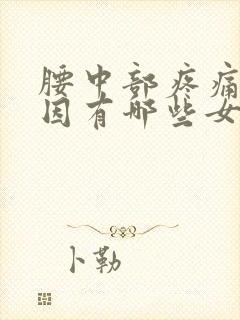 腰中部疼痛
因有哪些女
卜勒